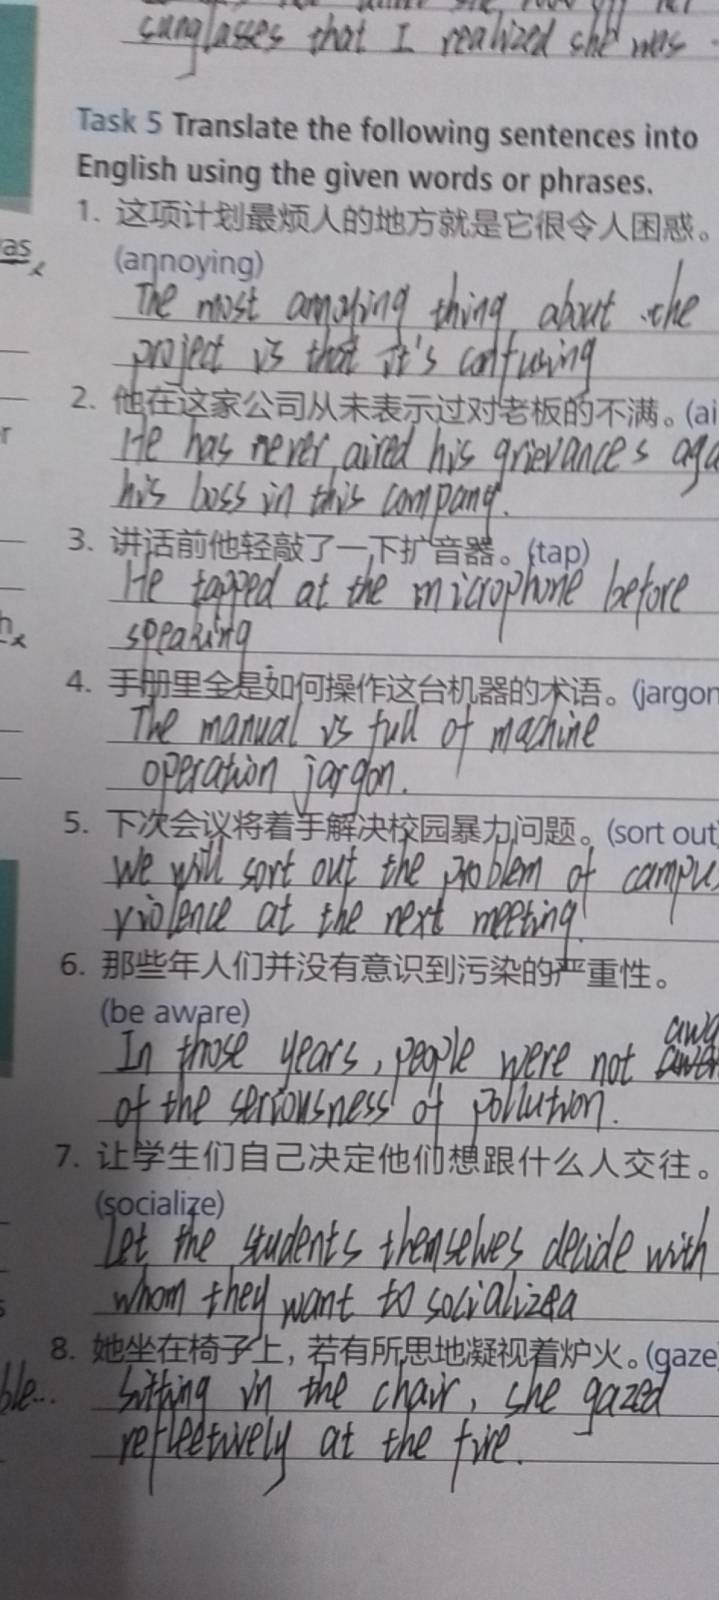 sunglasses that I realized she was
Task 5 Translate the following sentences into
English using the given words or phrases.
1. 这项计划最烦人的地方就是它很令人困惑。
as
(annoying)
The most annoying thing about the
project is that it's confusing
2. 他在这家公司从未表示过对老板的不满。(ai
r
He has never aired his grievances aga
his boss in this company.
3. 讲话前他轻敲了一下扩音器。(tap)
He tapped at the microphone before
speaking
4. 手册里全是如何操作这台机器的术语。(jargon
The manual is full of machine
operation jargon.
5. 下次会议将着手解决校园暴力问题。(sort out)
We will sort out the problem of campus
violence at the next meeting.
6. 那些年人们并没有意识到污染的严重性。
(be aware)
In those years, people were not awa
of the seriousness of pollution.
7. 让学生们自己决定他们想跟什么人交往。
(socialize)
Let the students themselves decide with
whom they want to socialize
8. 她坐在椅子上，若有所思地凝视着炉火。(gaze
ble...
Sitting in the chair, she gazed
reflectively at the fire.